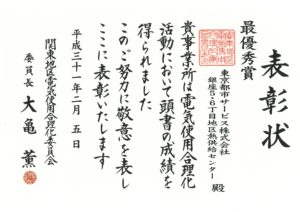 表彰状
最優秀賞
東京都市サービス株式会社
銀座5・6丁目地区熱供給センター 殿
貴事業所は電気使用合理化
活動において頭書の成績を
得られました
このご努力に敬意を表し
ここに表彰いたします
平成三十一年二月五日
関東地区電気使用合理化委員会
委員長 大亀 薫